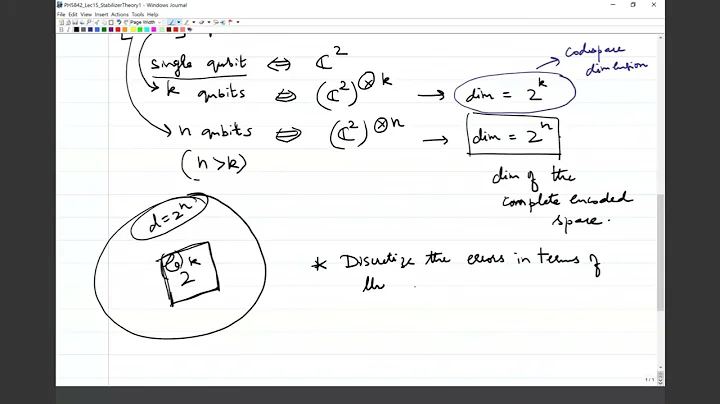 PH5842_Lec15_StabilizerTheory1 - Windows Journal
File Edit View Insert Actions Tools Help
Page Width
single qubit ⇔ ℂ²
codespace
dimension
k qubits ⇔ (ℂ²)^⊗k → dim = 2^k
n qubits ⇔ (ℂ²)^⊗n → dim = 2^n
(n>k)
dim of the
complete encoded
space.
d=2^n
2^k
* Discretize the errors in terms of
th
1/1